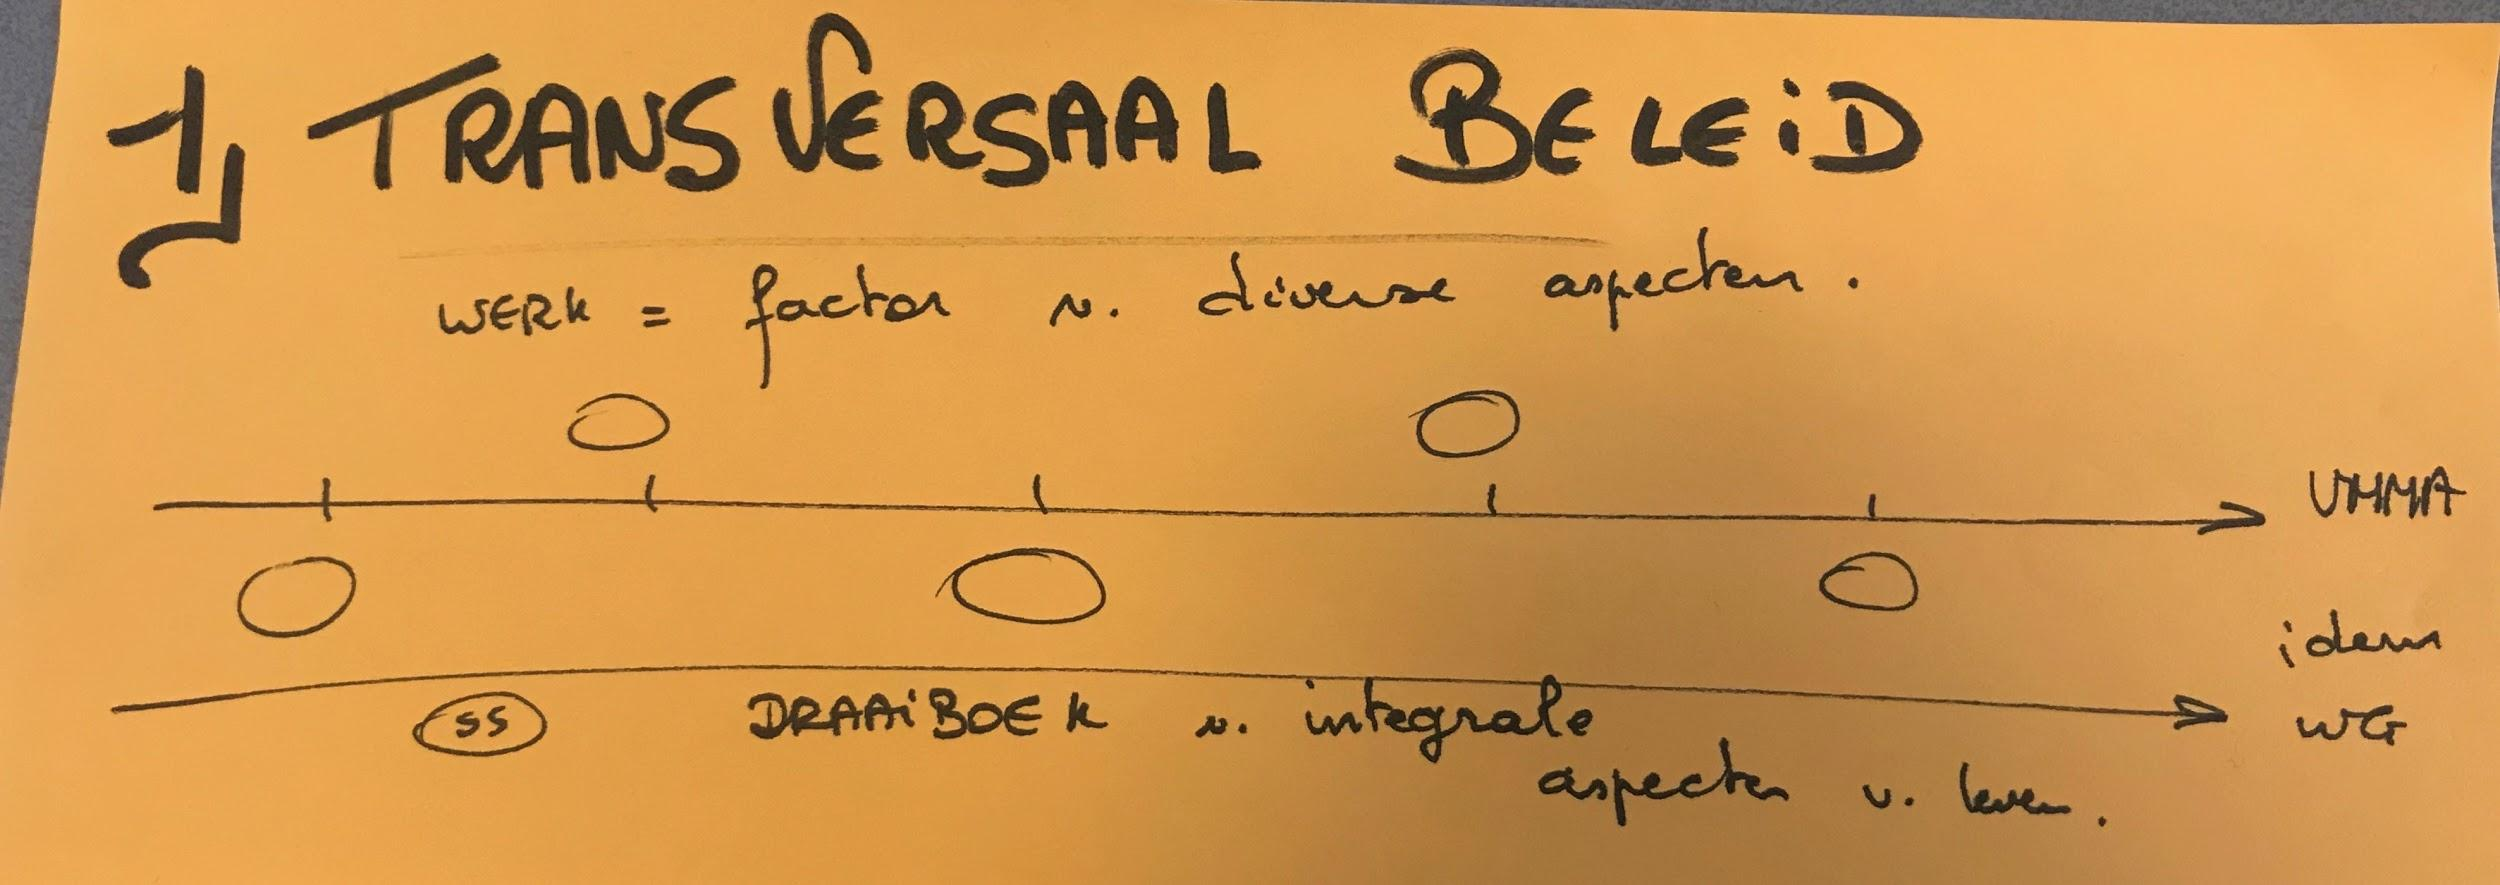 1, TRANSVERSAAL BELEID
WERK = factor v. diverse aspecten.
VMMA
idem
WG
SS DRAAIBOEK v. integrale
aspecten v. leven.